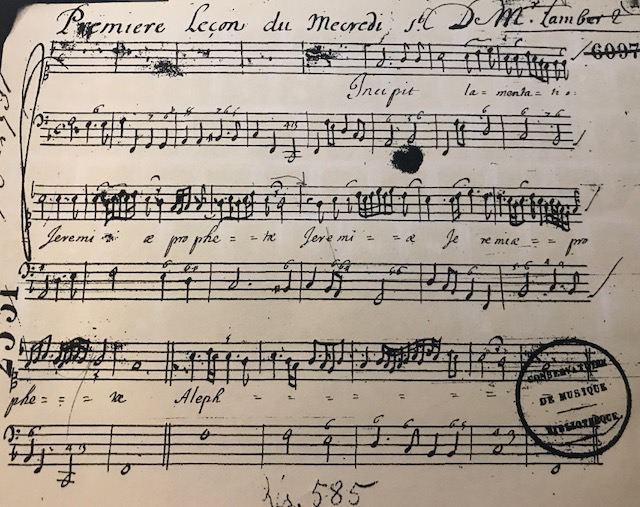 Premiere Leçon du Mecredi st. De Mr. Lambert
6097
Incipit la=menta=tio
Jeremi æ prophe==tæ Jeremi==æ Je remiæ==pro
phe===tæ Aleph = = = = = = =
CONSERVATOIRE
DE MUSIQUE
BIBLIOTHÈQUE
Rés. 585